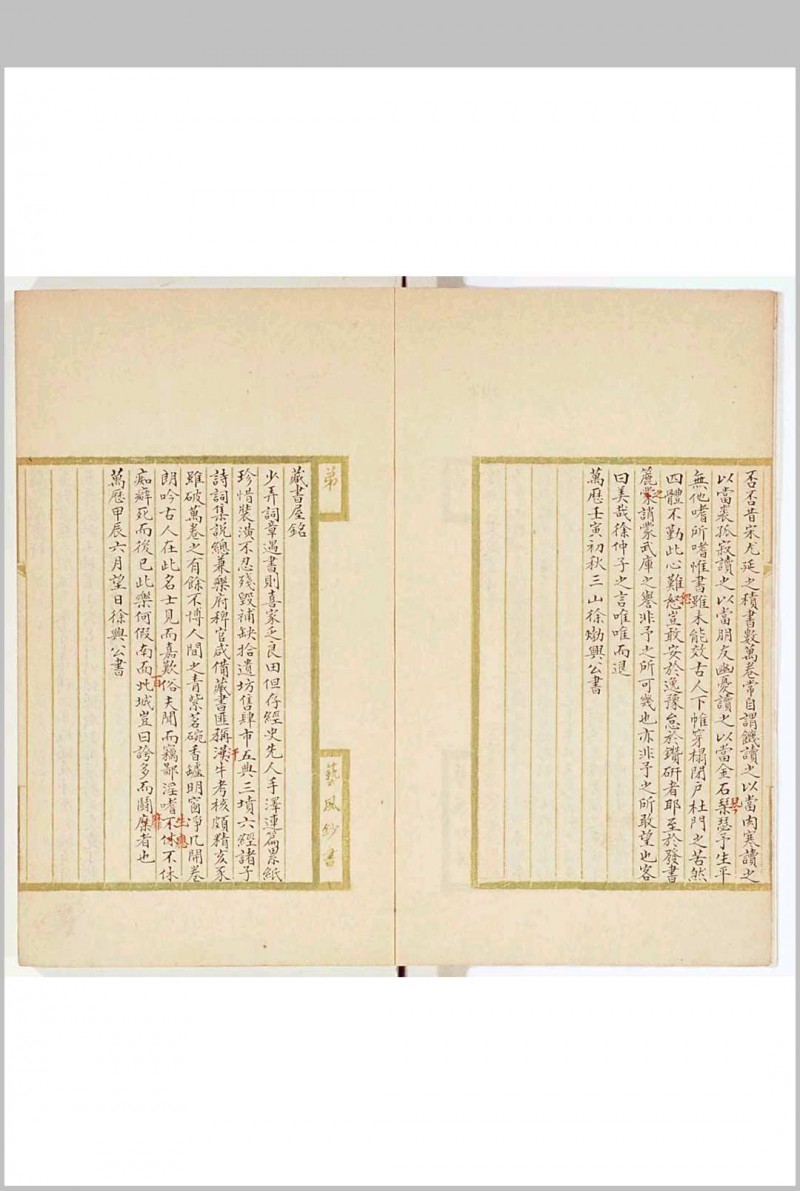 否否昔宋尤延之積書數萬卷常自謂饑讀之以當肉寒讀之
以當裘孤寂讀之以當朋友幽憂讀之以當金石琹瑟予生平
琴
無他嗜所嗜惟書雖未能效古人下帷穿榻閉戶杜門之苦然
四體不勤此心難恕豈敢安於逸豫怠於鑽研者耶至於發書
簏䝉誚䝉武庫之譽非予之所可幾也亦非予之所敢望也客
之
曰美哉徐仲子之言唯唯而退
萬歷壬寅初秋三山徐𤊹興公書
第
藝風鈔書
藏書屋銘
少弄詞章遇書則喜家乏良田但存經史先人手澤連篇累紙
珍惜裝潢不忍殘毀補缺拾遺坊售肆市五典三墳六經諸子
詩詞集說總兼樂府稗官咸備藏書匪稱漢牛考核頗精亥豕
汗
雖破萬卷之有餘不博人間之青紫茗碗香罏明窗凈几開卷
朗吟古人在此名士見而嘉歎俗夫聞而竊鄙淫嗜不休不休
生應
靡
痴癖死而後已此樂何假南而𠀌城豈曰誇多而鬬縻者也
百
萬歷甲辰六月望日徐興公書